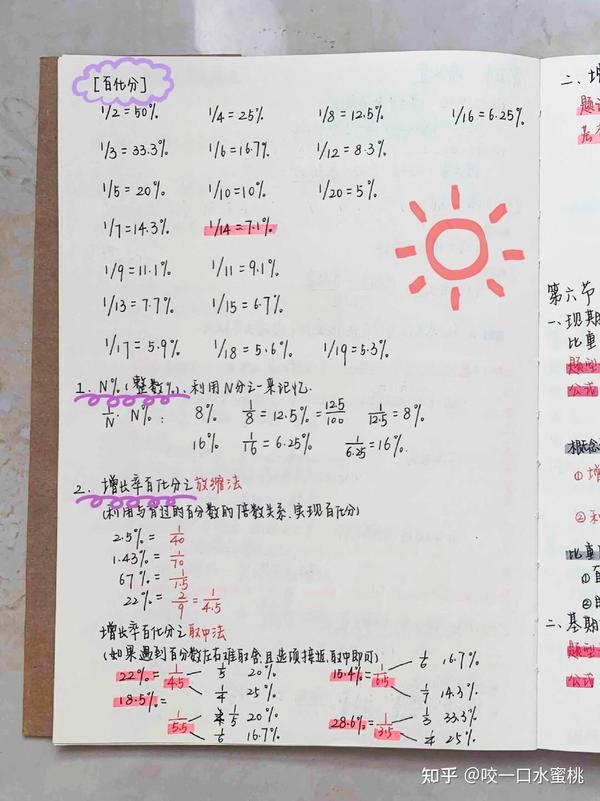 [百化分]
1/2=50% 1/4=25% 1/8=12.5% 1/16=6.25%
1/3=33.3% 1/6=16.7% 1/12=8.3%
1/5=20% 1/10=10% 1/20=5%
1/7=14.3% 1/14=7.1%
1/9=11.1% 1/11=9.1%
1/13=7.7% 1/15=6.7%
1/17=5.9% 1/18=5.6% 1/19=5.3%
1. N%(整数%),利用N分之一来记忆.
1/N · N%: 8% 1/8=12.5%=12.5/100 1/12.5=8%
16% 1/16=6.25% 1/6.25=16%
2. 增长率百化分之放缩法
(利用与背过的百分数的倍数关系,实现百化分)
2.5%=1/40
1.43%=1/70
67%=1/1.5
22%=2/9=1/4.5
增长率百化分之取中法
(如果遇到百分数左右难取舍,且选项接近,取中即可)
22%=1/4.5 1/5 20%
1/4 25%
18.5%=
1/5.5 1/5 20%
1/6 16.7%
15.4%=1/6.5 1/6 16.7%
1/7 14.3%
28.6%=1/3.5 1/3 33.3%
1/4 25%
二、增
题
第六节
一、现期
比重
题型
公式
概念
①增
②利
比重
①
②
二、基期
题型
公式
知乎 @咬一口水蜜桃